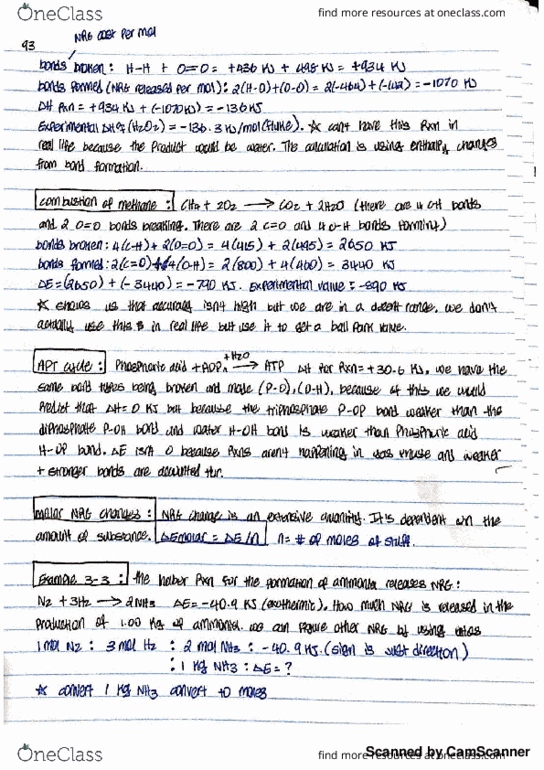 OneClass
find more resources at oneclass.com
93
NRG cost per mol
bonds broken: H-H + O=O = +436 KJ + 498 KJ = +934 KJ
bonds formed (NRG released per mol): 2(H-O)+(O-O) = 2(-464) + (-142) = -1070 KJ
ΔH Rxn = +934 KJ + (-1070 KJ) = -136 KJ
Experimental ΔH (H2O2) = -136.3 KJ/mol (fluke). * can't have this Rxn in
real life because the product would be water. The calculation is using enthalpy changes
from bond formation.
combustion of methane: CH4 + 2O2 → CO2 + 2H2O (there are 4 CH bonds
and 2 O=O bonds breaking. There are 2 C=O and 4 O-H bonds forming)
bonds broken: 4(C-H) + 2(O=O) = 4(415) + 2(495) = 2650 KJ
bonds formed: 2(C=O) + 4(O-H) = 2(800) + 4(460) = 3440 KJ
ΔE = (2650) + (-3440) = -790 KJ. Experimental value: -890 KJ
* shows us that accuracy isn't high but we are in a decent range. we don't
actually use this in real life but use it to get a ball park value.
APT cycle: Phosphoric acid + ADP → ATP +H2O ΔH for Rxn = +30.6 KJ. we have the
same bond types being broken and made (P-O), (O-H), because of this we would
Predict that ΔH = 0 KJ but because the triphosphate P-OP bond weaker than the
diphosphate P-OH bond and water H-OH bond is weaker than Phosphoric acid
H-OP bond. ΔE isn't 0 because Rxns aren't happening in and weaker
+ stronger bonds are accounted for.
molar NRG changes: NRG change is an extensive quantity. It is dependent on the
amount of substance. ΔEmolar = ΔE/n n = # of moles of stuff.
Example 3-3: the haber Rxn for the formation of ammonia releases NRG:
N2 + 3H2 → 2NH3 ΔE = -40.9 KJ (exothermic). How much NRG is released in the
production of 1.00 Kg of ammonia. we can figure other NRG by using
1 mol N2 : 3 mol H2 : 2 mol NH3 : -40.9 KJ. (sign is just direction)
: 1 Kg NH3 : ΔE = ?
* convert 1 Kg NH3 convert to moles
Scanned by CamScanner
OneClass
find more resources at oneclass.com